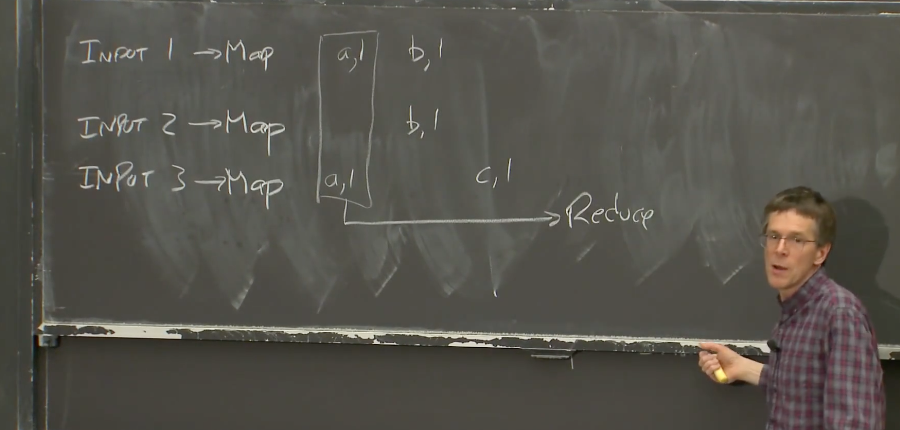 INPUT 1 → Map a,1 b,1
INPUT 2 → Map b,1
INPUT 3 → Map a,1 c,1
→ Reduce